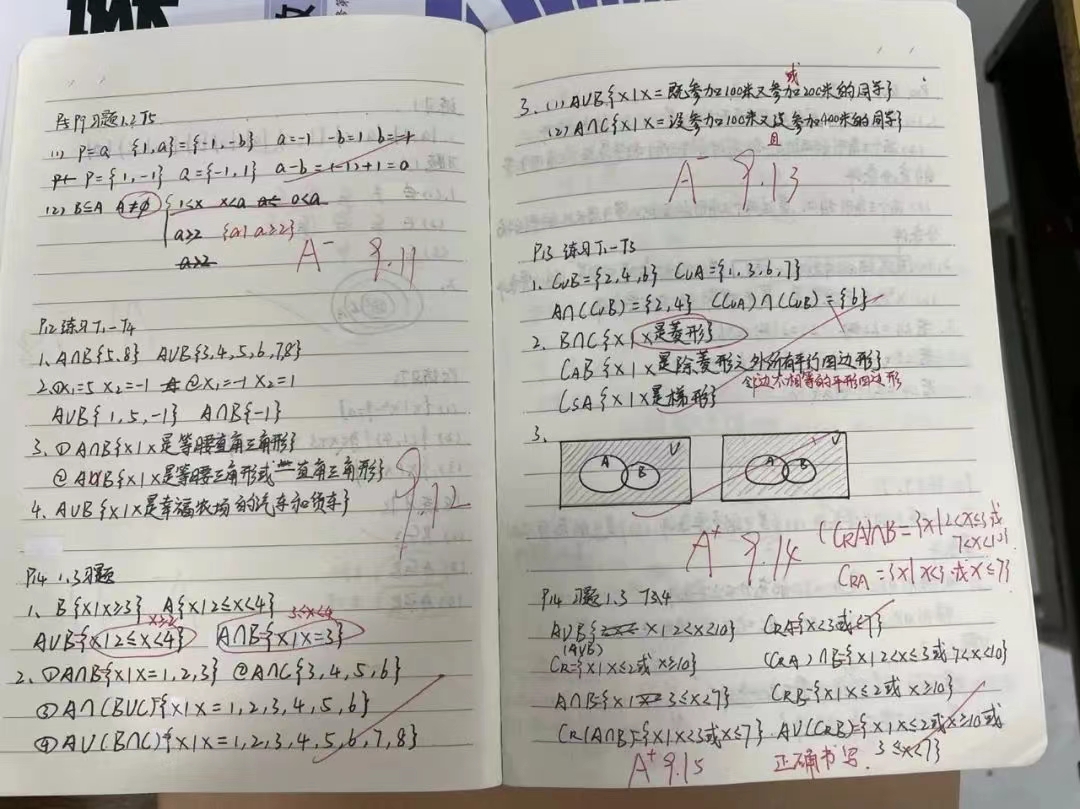 P9 习题1.2 T5
(1) P=Q {1,a}={-1,-b} a=-1 -b=1 b=-1
P={1,-1} Q={-1,1} a-b=(-1)+1=0
(2) B⊆A A≠∅ { 1<x x<a 0<a
a≥2 {a|a≥2}
a≥2
A⁻ 9.11
P12 练习T1-T4
1. A∩B{5.8} AUB{3,4,5,6,7,8}
2.①x₁=5 x₂=-1 ②x₁=-1 x₂=1
AUB{1,5,-1} A∩B{-1}
3. ①A∩B{x|x是等腰直角三角形}
②AUB{x|x是等腰三角形或直角三角形}
4. AUB{x|x是幸福农场的汽车和货车}
9.12
P14 1.3习题
1. B{x|x≥3} A{x|2≤x<4}
x≥2 3≤x<4
AUB={x|2≤x<4} A∩B={x|x=3}
2. ①A∩B={x|x=1,2,3} ②A∩C{3,4,5,6}
③A∩(BUC)={x|x=1,2,3,4,5,6}
④AU(B∩C)={x|x=1,2,3,4,5,6,7,8}
或
3. (1) AUB{x|x=既参加100米又参加200米的同学}
(2) A∩C{x|x=没参加100米又没参加400米的同学}
且
A⁻ 9.13
P13 练习T1-T3
1. CuB={2,4,6} CuA={1,3,6,7}
A∩(CuB)={2,4} (CuA)∩(CuB)={6}
2. B∩C{x|x是菱形}
CAB{x|x是除菱形之外所有平行四边形}
邻边不相等的平形四边形
CSA{x|x是梯形}
3.
A B U
A B U
A⁺ 9.14
(CRA)∩B={x|2<x<3或
7≤x<10}
CRA={x|x<3或x≤7}
P14 习题1.3 T3.4
AUB{x|2<x<10} CRA={x<3或≤7}
(AUB)
CR={x|x≤2或x≥10} (CRA)∩B={x|2<x<3或7<x<10}
A∩B={x|3≤x<7} CRB={x|x≤2或x≥10}
CR(A∩B)={x|x<3或x≤7} AU(CRB)={x|x≤2或x≥10或
3≤x<7}
A⁺ 9.15 正确书写.